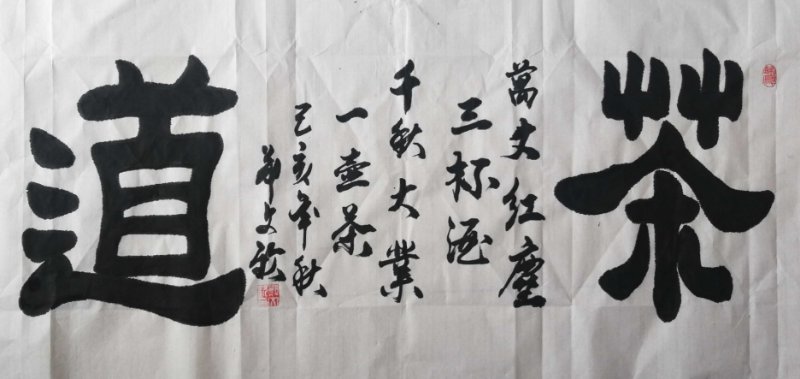 茶
萬丈红塵
三杯酒
千秋大業
一壶茶
己亥年秋
道